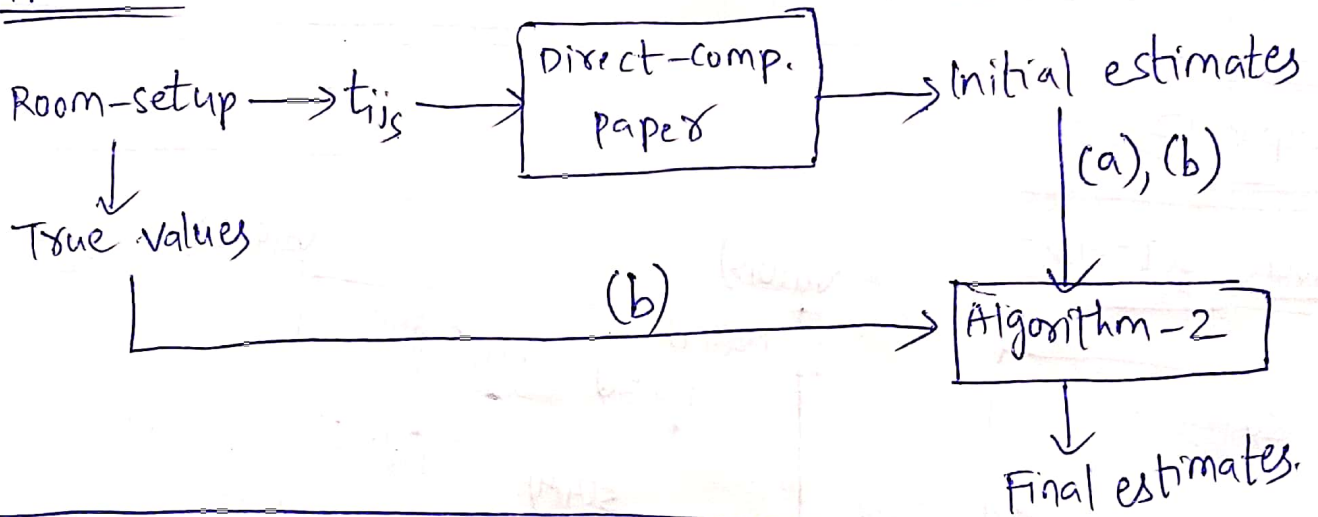 Room-setup → tijs → Direct-comp. → Initial estimates
paper
(a), (b)
True values
(b)
Algorithm-2
Final estimates.